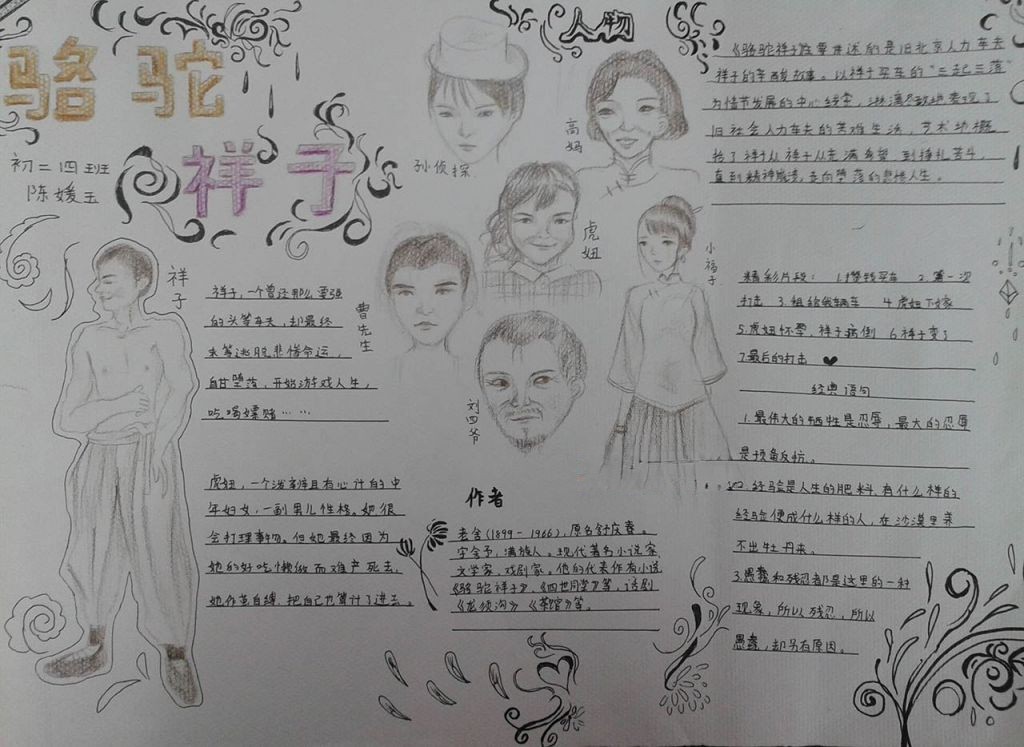 骆驼
祥子
初二四班
陈媛玉
人物
孙侦探
高妈
虎妞
小福子
曹先生
刘四爷
祥子
祥子,一个曾经那么要强
的头等车夫,却最终
未等逃脱悲惨命运,
自甘堕落,开始游戏人生,
吃喝嫖赌……
虎妞,一个泼辣且有心计的中
年妇女,一副男儿性格。她很
会打理事物。但她最终因为
她的好吃懒做而难产死去,
她作茧自缚,把自己也算计了进去。
作者
老舍(1899-1966),原名舒庆春。
字舍予,满族人。现代著名小说家
文学家,戏剧家。他的代表作有小说
《骆驼祥子》《四世同堂》等,话剧
《龙须沟》《茶馆》等。
《骆驼祥子》主要讲述的是旧北京人力车夫
祥子的辛酸故事。以祥子买车的“三起三落”
为情节发展的中心线索,淋漓尽致地表现了
旧社会人力车夫的苦难生活,艺术地概
括了祥子从祥子从充满希望,到挣扎苦斗,
直到精神崩溃,走向堕落的悲惨人生。
精彩片段: 1.攒钱买车 2.第一次
打击 3.租给俩辆车 4.虎妞下嫁
5.虎妞怀孕,祥子病倒 6.祥子变了
7.最后的打击
经典语句
1.最伟大的牺牲是忍辱,最大的忍辱
是预备反抗。
2.经验是人生的肥料,有什么样的
经验便成什么样的人,在沙漠里养
不出牡丹来。
3.愚蠢和残忍都是这里的一种
现象,所以残忍,所以
愚蠢,却另有原因。